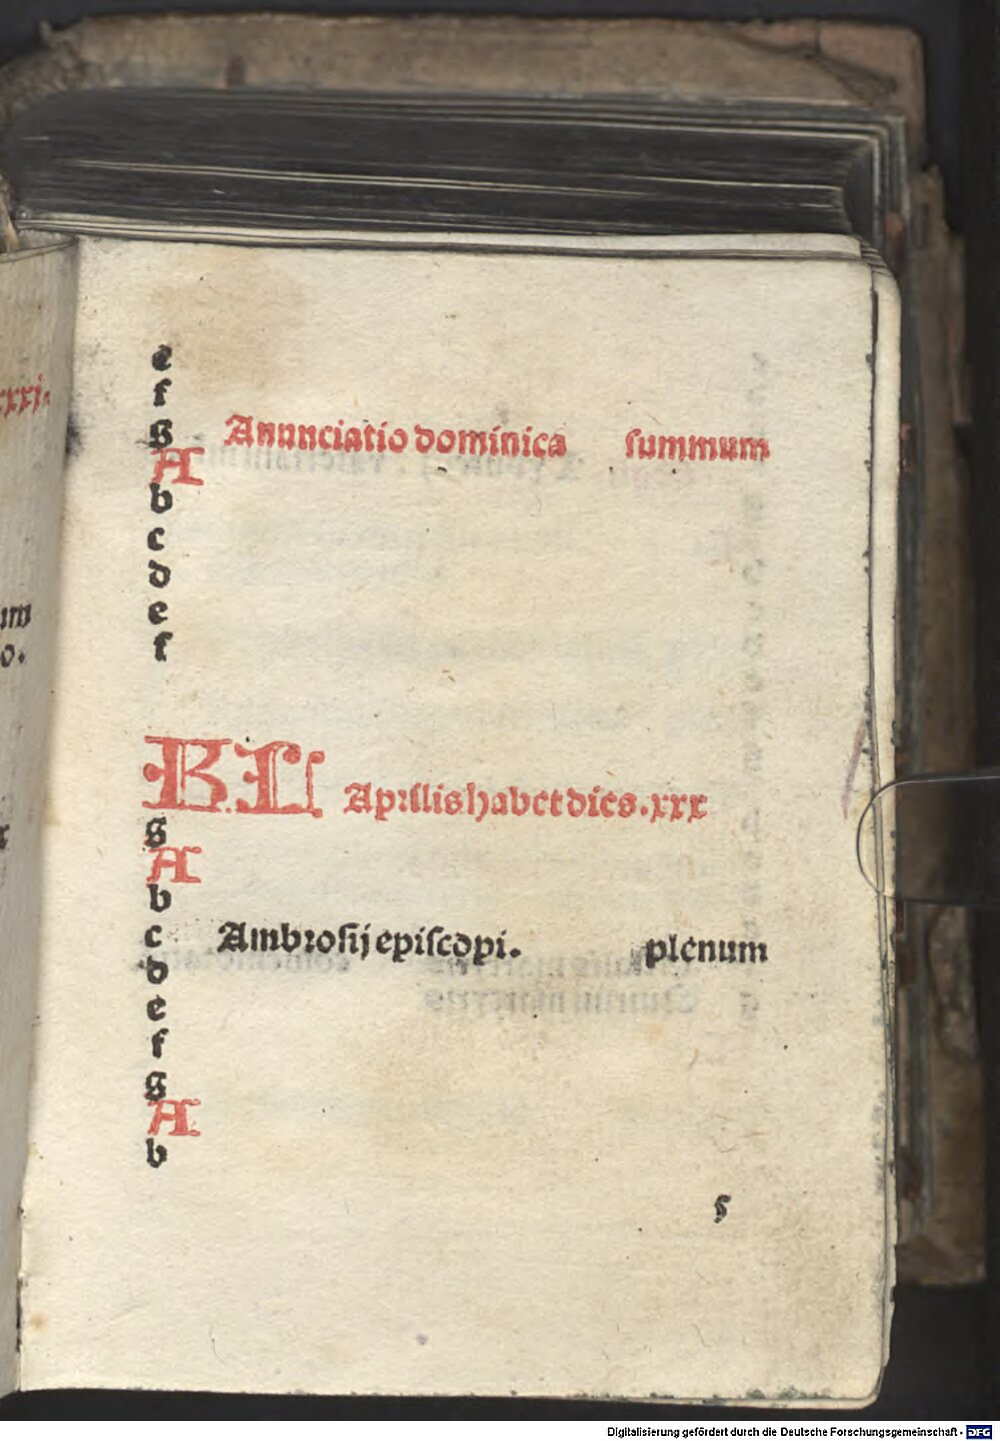 e
f
g Anunciatio dominica summum
A
b
c
d
e
f
KL Aprillis habet dies .xxx
g
A
b
c Ambrosij episcopi. plenum
d
e
f
g
A
b
Digitalisierung gefördert durch die Deutsche Forschungsgemeinschaft - DFG